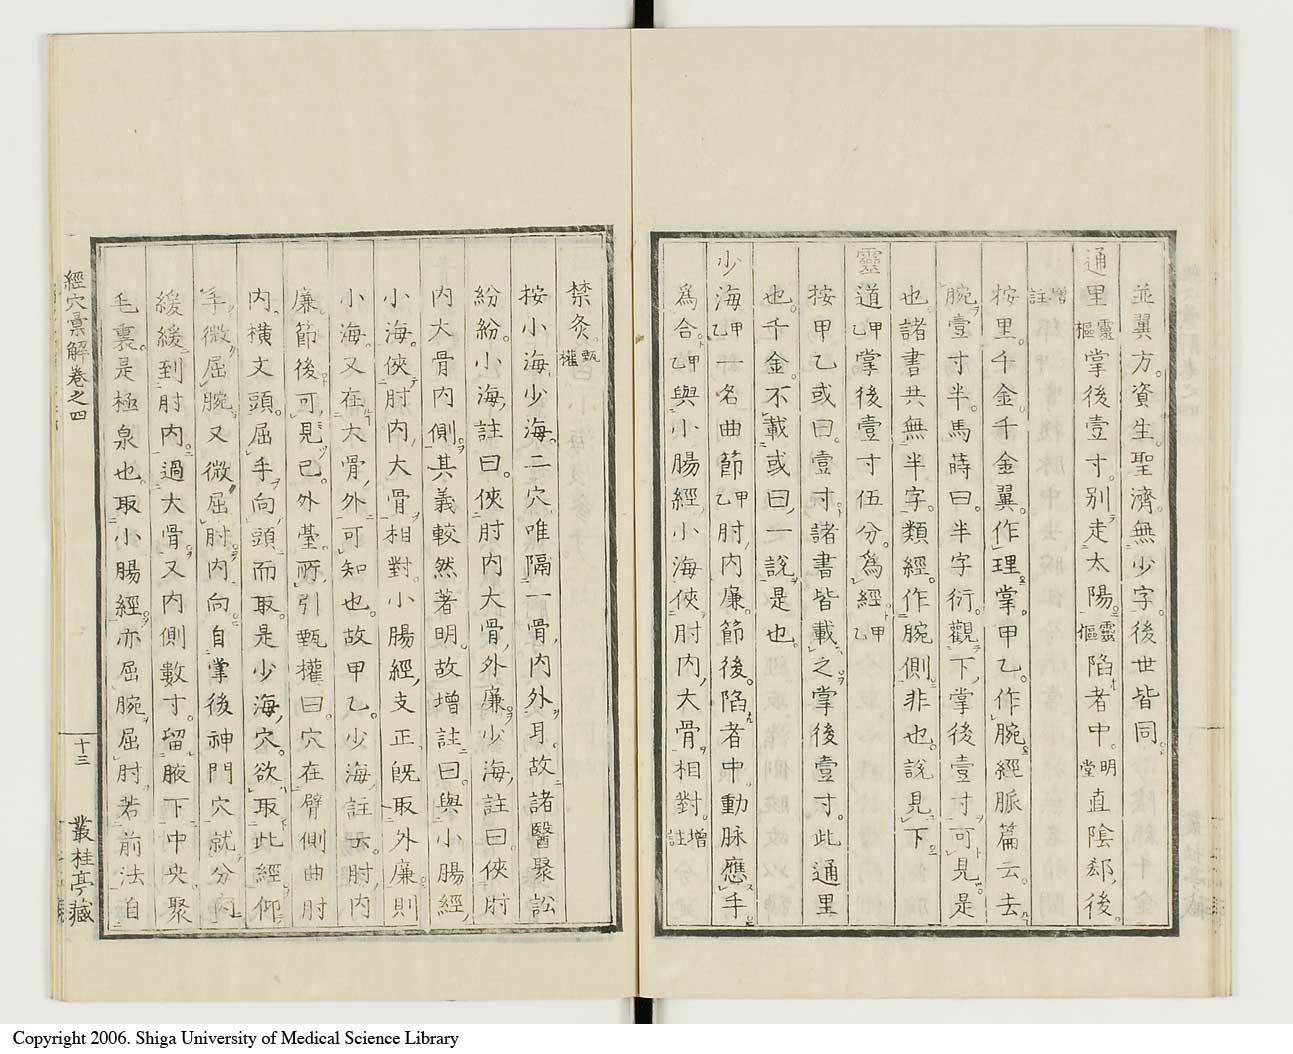 並翼方。資生。聖濟。無少字。後世皆同。
通里靈樞掌後壹寸。別走太陽。靈樞陷者中。明堂直陰郄後。
增註
按里。千金。千金翼。作理。掌。甲乙。作腕。經脈篇云。去
腕壹寸半。馬蒔曰。半字衍。觀下。掌後壹寸可見。是
也。諸書共無半字。類經。作腕側。非也。說見下
靈道甲乙掌後壹寸伍分。為經。甲乙
按甲乙或曰。壹寸。諸書皆載之。掌後壹寸。此通里
也。千金。不載或曰。一說。是也。
少海甲乙一名曲節甲乙肘內廉。節後。陷者中。動脉應手
為合。甲乙與小腸經。小海俠肘內大骨相對。增註
禁灸。甄權
按小海少海。二穴。唯隔一骨內外耳。故諸醫聚訟
紛紛。小海。註曰。俠肘內大骨外廉。少海。註曰。俠肘
內大骨內側。其義較然著明。故增註曰。與小腸經
小海。俠肘內大骨相對。小腸經支正。既取外廉。則
小海。又在大骨外可知也。故甲乙。少海。註云。肘內
廉節後。可見已。外臺。所引甄權曰。穴在臂側曲肘
內。橫文頭。屈手向頭而取。是少海穴。欲取此經。仰
手微屈腕。又微屈肘內向。自掌後神門穴就分肉
緩緩到肘內。過大骨。又內側數寸。留腋下中央。聚
毛裏。是極泉也。取小腸經。亦屈腕。屈肘。若前法。自
經穴彙解卷之四
十三
叢桂亭藏
Copyright 2006. Shiga University of Medical Science Library